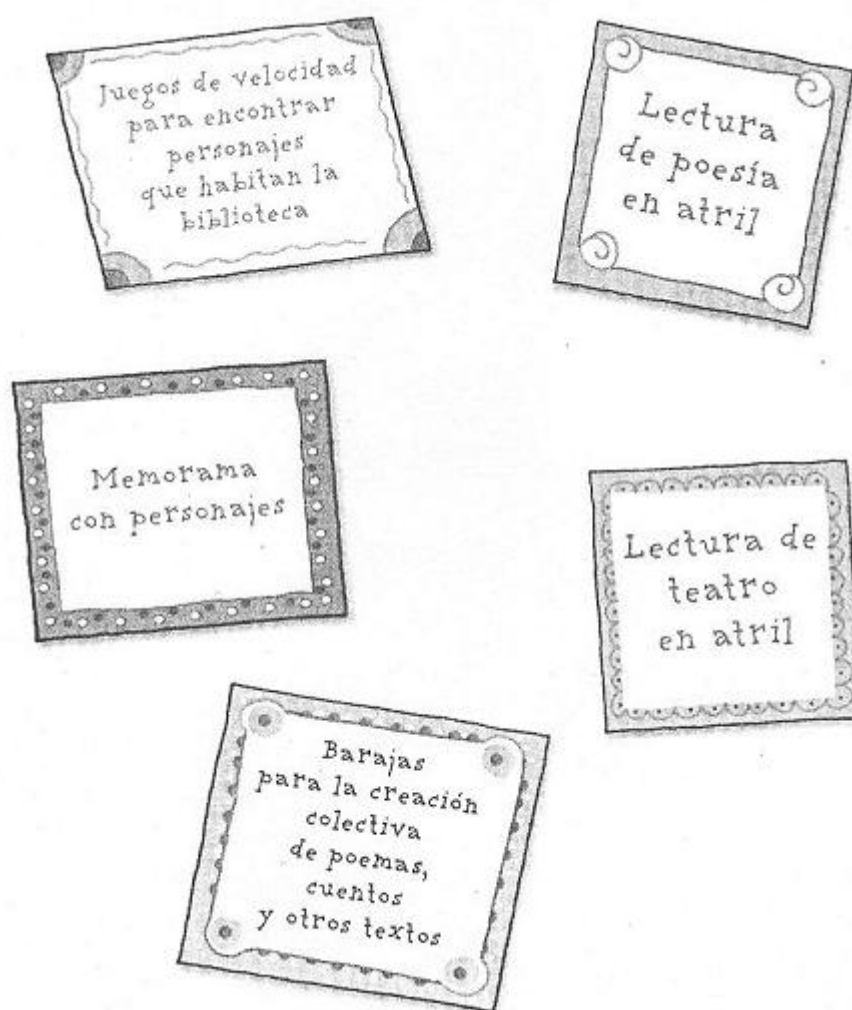 Juegos de velocidad
para encontrar
personajes
que habitan la
biblioteca
Lectura
de poesía
en atril
Memorama
con personajes
Lectura de
teatro
en atril
Barajas
para la creación
colectiva
de poemas,
cuentos
y otros textos